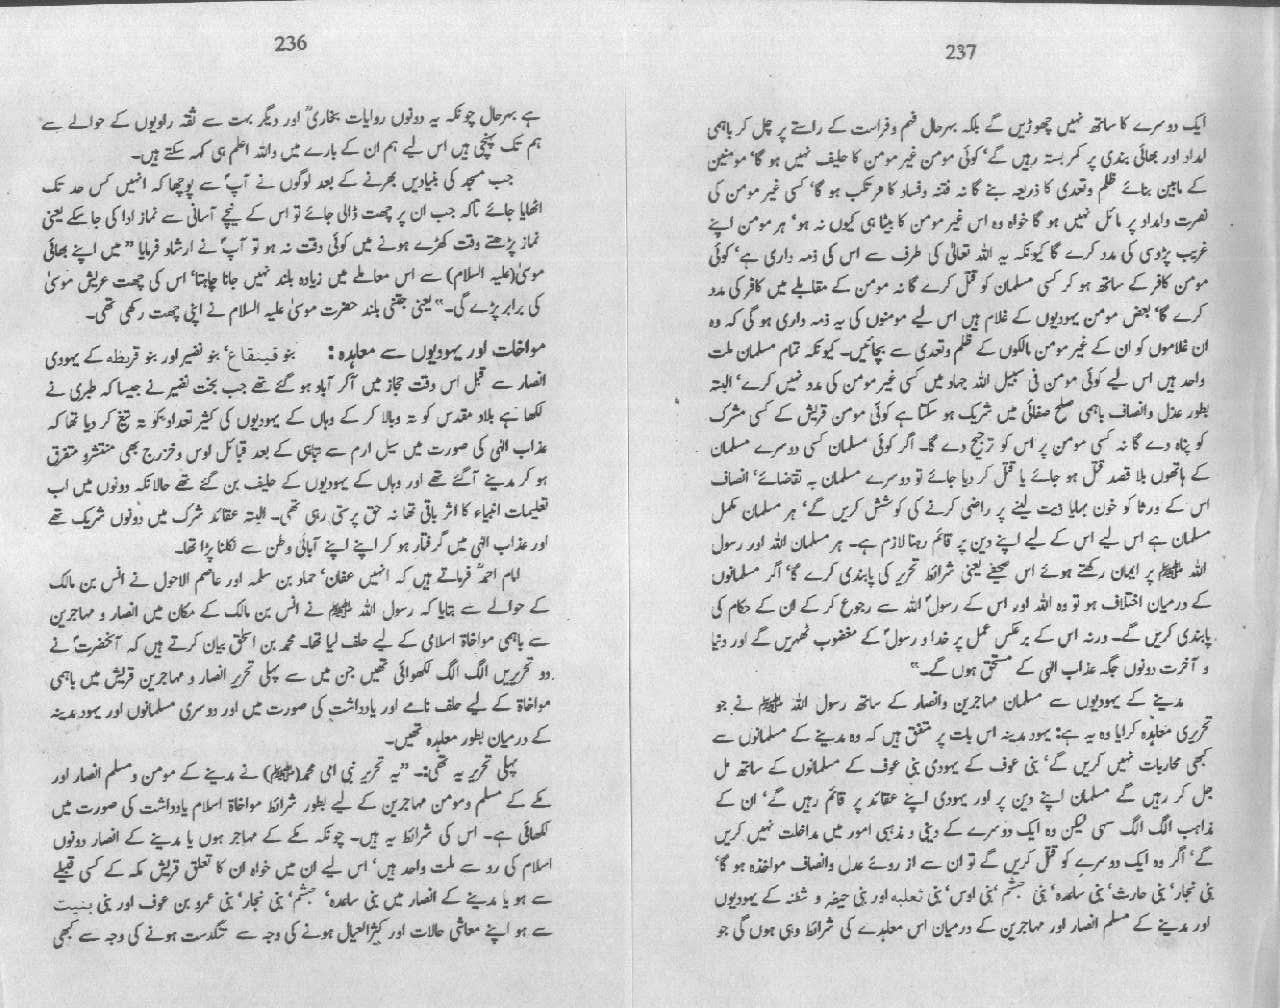 236
ہے بہرحال چونکہ یہ دونوں روایات بخاریؒ اور دیگر بہت سے ثقہ راویوں کے حوالے سے
ہم تک پہنچی ہیں اس لیے ہم ان کے بارے میں واللہ اعلم ہی کہہ سکتے ہیں۔
جب مسجد کی بنیادیں بھرنے کے بعد لوگوں نے آپؐ سے پوچھا کہ انہیں کس حد تک
اٹھایا جائے تاکہ جب ان پر چھت ڈالی جائے تو اس کے نیچے آسانی سے نماز ادا کی جا سکے یعنی
نماز پڑھتے وقت کھڑے ہونے میں کوئی دقت نہ ہو تو آپؐ نے ارشاد فرمایا ”میں اپنے بھائی
موسیٰ(علیہ السلام) سے اس معاملے میں زیادہ بلند نہیں جانا چاہتا‘ اس کی چھت عریش موسیٰ
کی برابر پڑے گی۔“ یعنی جتنی بلند حضرت موسیٰ علیہ السلام نے اپنی چھت رکھی تھی۔
مواخات اور یہودیوں سے معاہدہ : بنو قینقاع‘ بنو نضیر اور بنو قریظہ کے یہودی
انصار سے قبل اس وقت حجاز میں آکر آباد ہو گئے تھے جب بخت نصیر نے جیسا کہ طبری نے
لکھا ہے بلاد مقدس کو تہ وبالا کر کے وہاں کے یہودیوں کی کثیر تعداد کو تہ تیغ کر دیا تھا کہ
عذاب الٰہی کی صورت میں سیل ارم سے تباہی کے بعد قبائل اوس وخزرج بھی منتشر و متفرق
ہو کر مدینے آگئے تھے اور وہاں کے یہودیوں کے حلیف بن گئے تھے حالانکہ دونوں میں اب
تعلیمات انبیاء کا اثر باقی تھا نہ حق پرستی رہی تھی۔ البتہ عقائد شرک میں دونوں شریک تھے
اور عذاب الٰہی میں گرفتار ہو کر اپنے اپنے آبائی وطن سے نکلنا پڑا تھا۔
امام احمدؒ فرماتے ہیں کہ انہیں عفان‘ حماد بن سلمہ اور عاصم الاحول نے انس بن مالک
کے حوالے سے بتایا کہ رسول اللہ ﷺ نے انس بن مالک کے مکان میں انصار و مہاجرین
سے باہمی مواخاۃ اسلامی کے لیے حلف لیا تھا۔ محمد بن اسحٰق بیان کرتے ہیں کہ آنحضرتؐ نے
دو تحریریں الگ الگ لکھوائی تھیں جن میں سے پہلی تحریر انصار و مہاجرین قریش میں باہمی
مواخاۃ کے لیے حلف نامے اور یادداشت کی صورت میں اور دوسری مسلمانوں اور یہود مدینہ
کے درمیان بطور معاہدہ تھیں۔
پہلی تحریر یہ تھی:۔ ”یہ تحریر نبی امی محمد(ﷺ) نے مدینے کے مومن و مسلم انصار اور
مکے کے مسلم ومومن مہاجرین کے لیے بطور شرائط مواخاۃ اسلام یادداشت کی صورت میں
لکھائی ہے۔ اس کی شرائط یہ ہیں۔ چونکہ مکے کے مہاجر ہوں یا مدینے کے انصار دونوں
اسلام کی رو سے ملت واحد ہیں‘ اس لیے ان میں خواہ ان کا تعلق قریش مکہ کے کسی قبیلے
سے ہو یا مدینے کے انصار میں بنی ساعدہ‘ جشم‘ بنی نجار‘ بنی عمرو بن عوف اور بنی
سے ہو اپنے معاشی حالات اور کثیرالعیال ہونے کی وجہ سے تنگدست ہونے کی وجہ سے کبھی
237
ایک دوسرے کا ساتھ نہیں چھوڑیں گے بلکہ بہرحال فہم وفراست کے راستے پر چل کر باہمی
امداد اور بھائی بندی پر کمر بستہ رہیں گے‘ کوئی مومن غیر مومن کا حلیف نہیں ہو گا‘ مومنین
کے مابین بنائے ظلم وتعدی کا ذریعہ بنے گا نہ فتنہ وفساد کا مرتکب ہو گا‘ کسی غیر مومن کی
نصرت وامداد پر مائل نہیں ہو گا خواہ وہ اس غیر مومن کا بیٹا ہی کیوں نہ ہو‘ ہر مومن اپنے
غریب پڑوسی کی مدد کرے گا کیونکہ یہ اللہ تعالٰی کی طرف سے اس کی ذمہ داری ہے‘ کوئی
مومن کافر کے ساتھ ہو کر کسی مسلمان کو قتل کرے گا نہ مومن کے مقابلے میں کافر کی مدد
کرے گا‘ بعض مومن یہودیوں کے غلام ہیں اس لیے مومنوں کی یہ ذمہ داری ہو گی کہ وہ
ان غلاموں کو ان کے غیر مومن مالکوں کے ظلم وتعدی سے بچائیں۔ کیونکہ تمام مسلمان ملت
واحد ہیں اس لیے کوئی مومن فی سبیل اللہ جہاد میں کسی غیر مومن کی مدد نہیں کرے‘ البتہ
بطور عدل وانصاف باہمی صلح صفائی میں شریک ہو سکتا ہے کوئی مومن قریش کے کسی مشرک
کو پناہ دے گا نہ کسی مومن پر اس کو ترجیح دے گا۔ اگر کوئی مسلمان کسی دوسرے مسلمان
کے ہاتھوں بلا قصد قتل ہو جائے یا قتل کر دیا جائے تو دوسرے مسلمان بہ تقاضائے‘ انصاف
اس کے ورثا کو خون بہایا دیت لینے پر راضی کرنے کی کوشش کریں گے‘ ہر مسلمان مکمل
مسلمان ہے اس لیے اس کے لیے اپنے دین پر قائم رہنا لازم ہے۔ ہر مسلمان اللہ اور رسول
اللہ ﷺ پر ایمان رکھتے ہوئے اس صحیفے یعنی شرائط تحریر کی پابندی کرے گا‘ اگر مسلمانوں
کے درمیان اختلاف ہو تو وہ اللہ اور اس کے رسولؐ اللہ سے رجوع کر کے ان کے حکام کی
پابندی کریں گے۔ ورنہ اس کے برعکس عمل پر خدا و رسولؐ کے مغضوب ٹھہریں گے اور دنیا
و آخرت دونوں جگہ عذاب الٰہی کے مستحق ہوں گے۔“
مدینے کے یہودیوں سے مسلمان مہاجرین وانصار کے ساتھ رسول اللہ ﷺ نے جو
تحریری معاہدہ کرایا وہ یہ ہے: یہود مدینہ اس بات پر متفق ہیں کہ وہ مدینے کے مسلمانوں سے
کبھی محاربات نہیں کریں گے‘ بنی عوف کے یہودی بنی عوف کے مسلمانوں کے ساتھ مل
جل کر رہیں گے مسلمان اپنے دین پر اور یہودی اپنے عقائد پر قائم رہیں گے‘ ان کے
مذاہب الگ الگ سہی لیکن وہ ایک دوسرے کے دینی و مذہبی امور میں مداخلت نہیں کریں
گے‘ اگر وہ ایک دوسرے کو قتل کریں گے تو ان سے از روئے عدل وانصاف مواخذہ ہو گا‘
بنی نجار‘ بنی حارث‘ بنی ساعدہ‘ بنی جشم‘ بنی اوس‘ بنی ثعلبہ اور بنی حیفہ و شفنہ کے یہودیوں
اور مدینے کے مسلم انصار اور مہاجرین کے درمیان اس معاہدے کی شرائط وہی ہوں گی جو